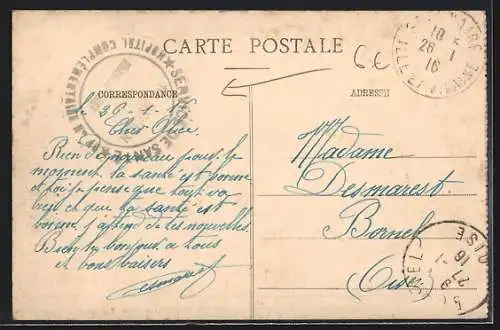 CARTE POSTALE
CORRESPONDANCE
ADRESSE
SERVICE DE SANTÉ
HÔPITAL COMPLÉMENTAIRE
ILLE ET VILAINE
26 - 1
16
Cher Alice.
Rien de nouveau pour le
moment la santé est bonne
et toi je pense que tout va
bien et que la santé est
bonne. J'attend de tes nouvelles.
Bien le bonjour a tous
et bons baisers
Desmarest
Madame
Desmarest.
Bornel
Oise
27 - 1
16
OISE